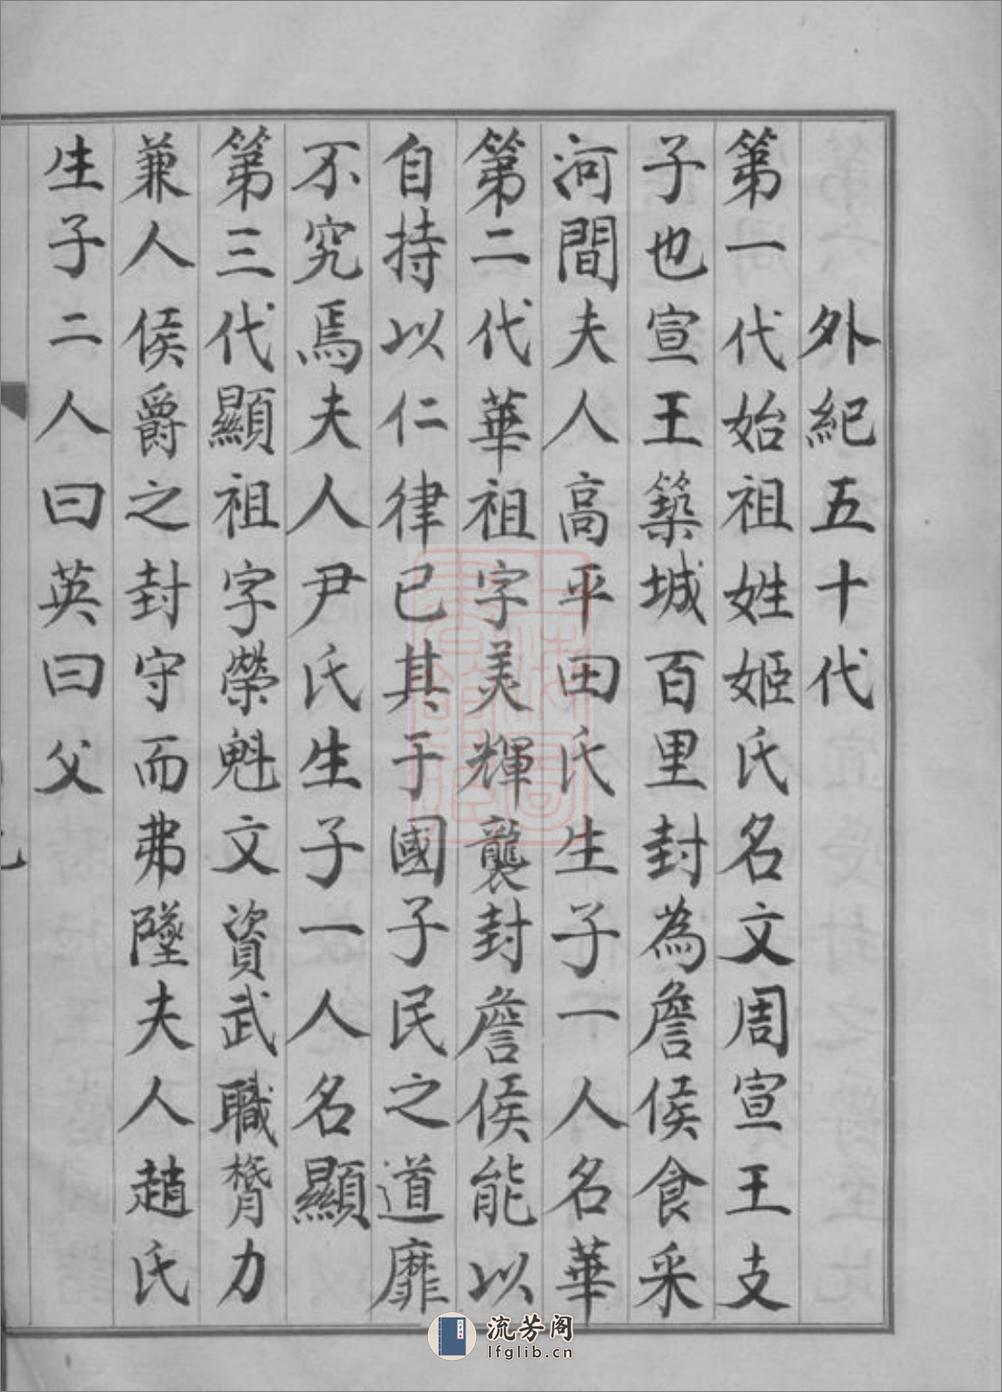 外紀五十代
第一代始祖姓姬氏名文周宣王支
子也宣王築城百里封為詹侯食采
河間夫人高平田氏生子一人名華
第二代華祖字美輝襲封詹侯能以
自持以仁律已其于國子民之道靡
不究焉夫人尹氏生子一人名顯
第三代顯祖字榮魁文資武職膂力
兼人侯爵之封守而弗墜夫人趙氏
生子二人曰英曰父
流芳阁
lfglib.cn